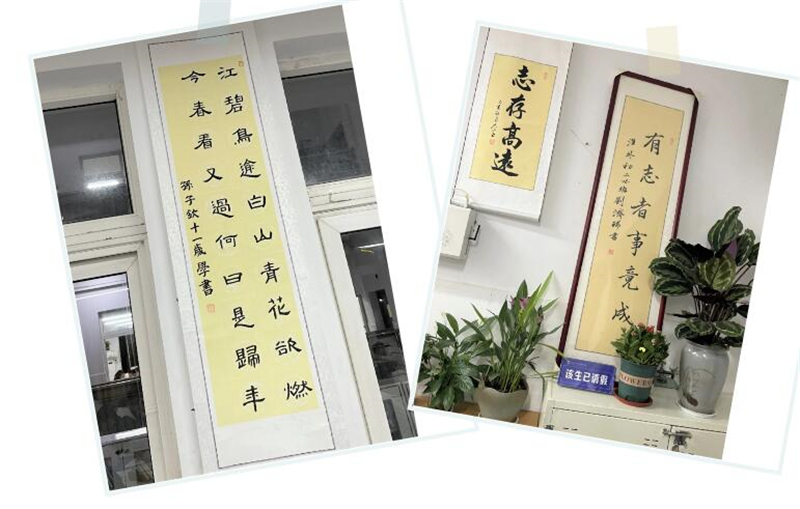 江碧鳥逾白山青花欲燃
今春看又過何日是歸年
孫子欽十一歲學書
志存高遠
有志者事竟成
該生已請假
FLOWERS